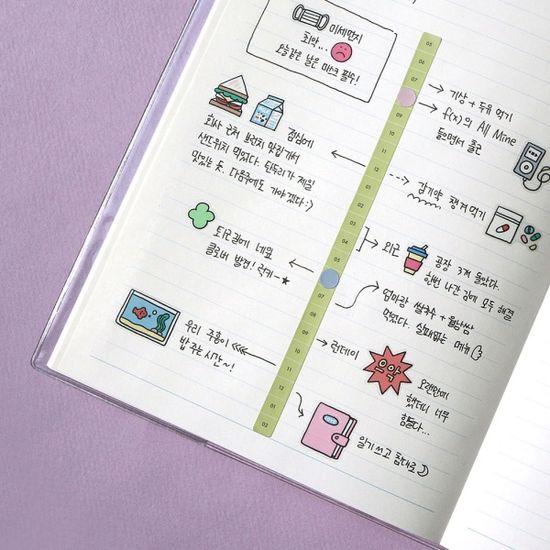 미세먼지
최악...
오늘같은 날은 마스크 필수!
점심에
회사 근처 브런치 맛집가서
샌드위치 먹었다. 루꼴라가 제일
맛있는 듯. 다음주에도 가야겠다 :)
퇴근길에 네잎
클로버 발견! 럭키-★
우리 주홍이
밥 주는 시간~!
05
06
07
09
10
11
12
01
02
03
04
05
07
08
09
10
11
12
01
02
기상 + 두유 먹기
f(x)의 All Mine
들으면서 출근
감기약 챙겨먹기
외근
공장 3곳 돌았다.
한번 나간 김에 모두 해결
엄마랑 쌀국수 + 월남쌈
먹었다. 실패없는 메뉴
런데이
으악
오랜만에
했더니 너무
힘들다...
일기쓰고 침대로